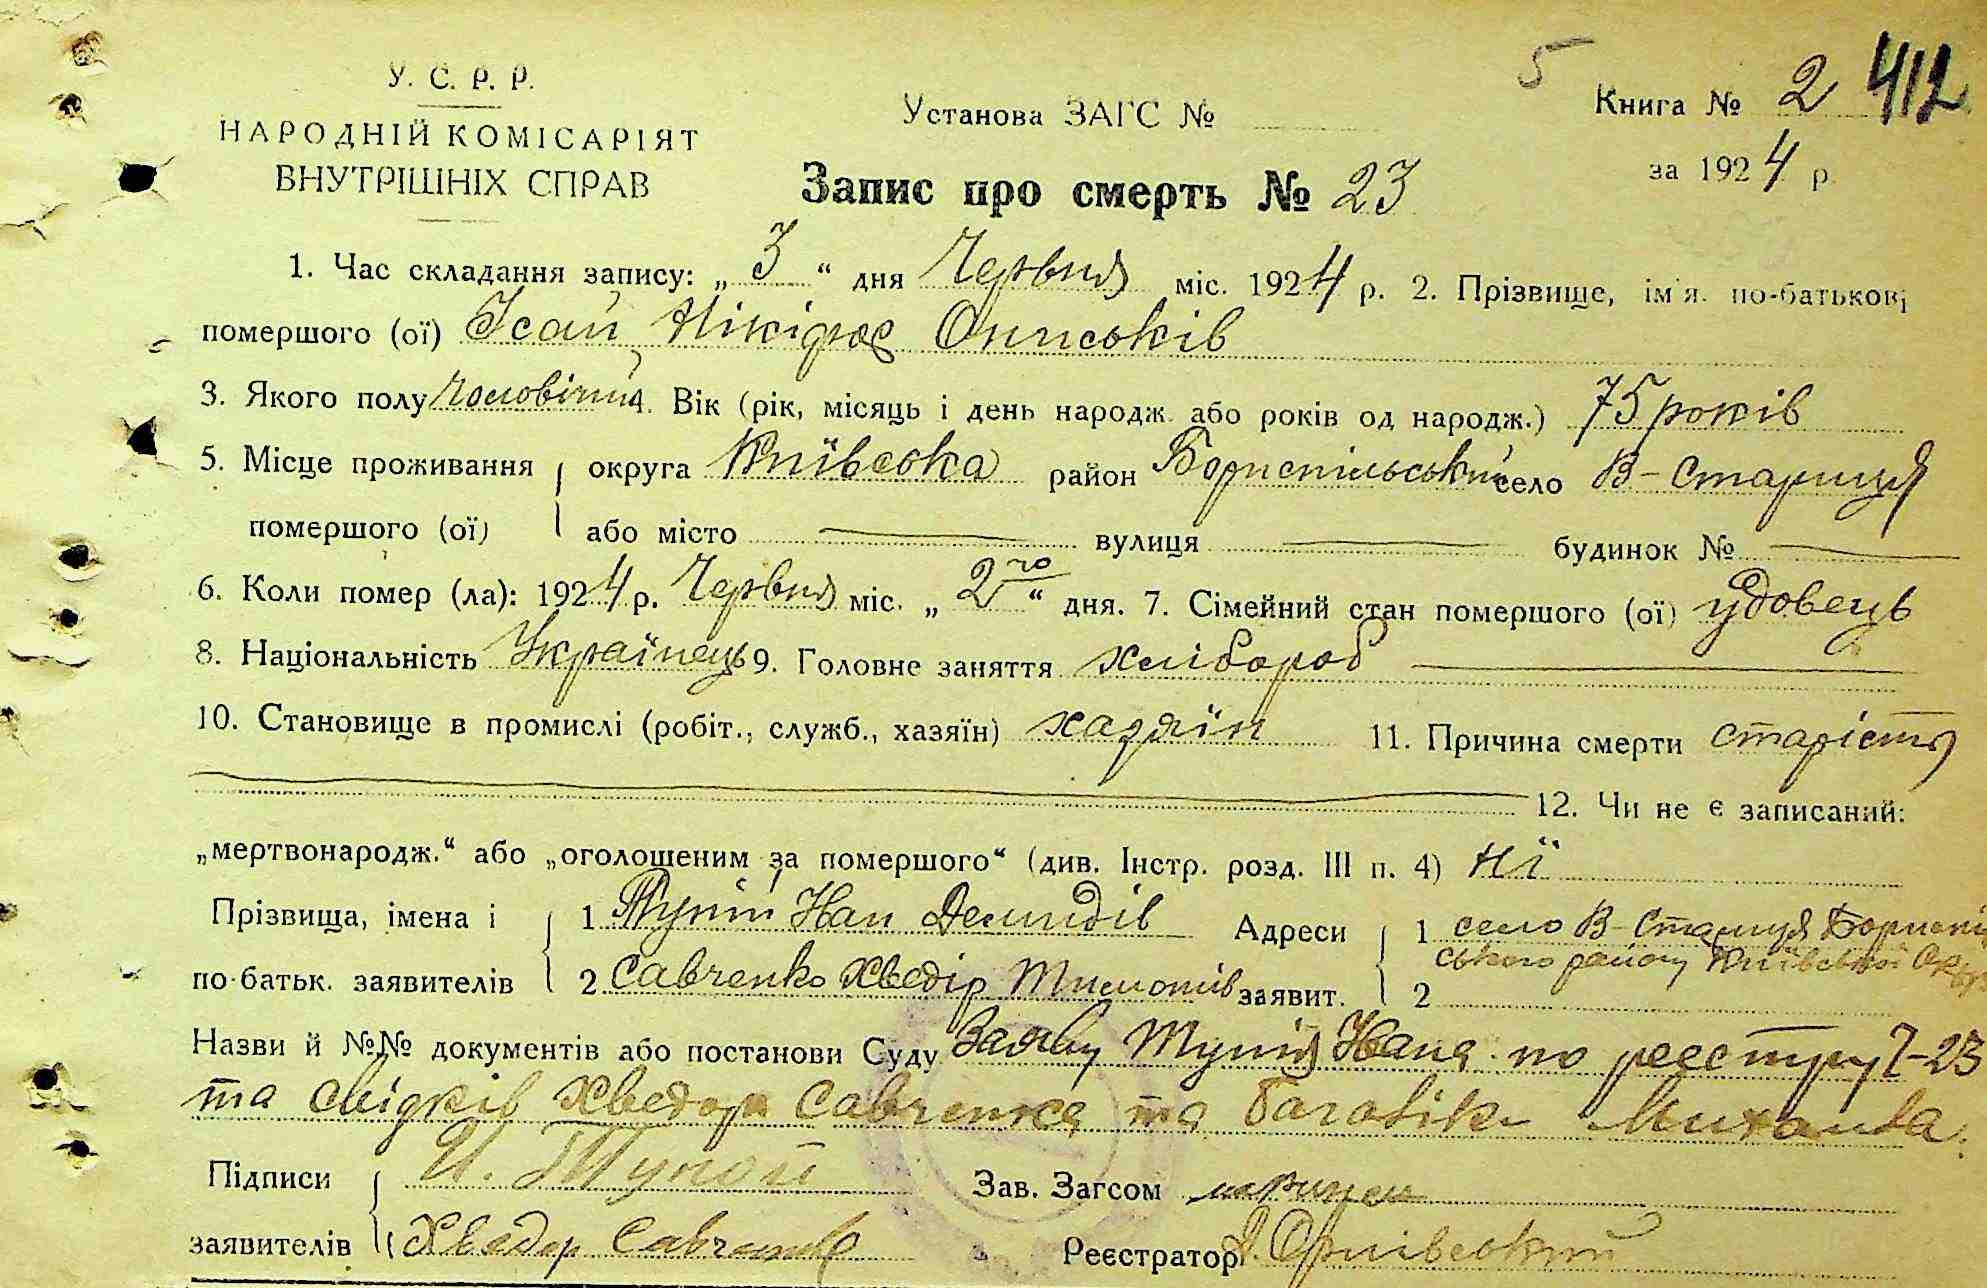 У. С. Р. Р.
НАРОДНІЙ КОМІСАРІЯТ
ВНУТРІШНІХ СПРАВ
Установа ЗАГС №
5
Книга № 2 412
за 1924 р.
Запис про смерть № 23
1. Час складання запису: „3“ дня Червня міс. 1924 р. 2. Прізвище, ім'я. по-батькові
помершого (ої) Ісай Нікіфор
3. Якого полу Чоловічий 4. Вік (рік, місяць і день народж. або років од народж.) 75 років
5. Місце проживання округа Київська район Бориспільський село В-Стариця
помершого (ої) або місто — вулиця — будинок № —
6. Коли помер (ла): 1924 р. Червня міс. „2го“ дня. 7. Сімейний стан помершого (ої) удовець
8. Національність Українець 9. Головне заняття хлібороб —
10. Становище в промислі (робіт., служб., хазяїн) хазяїн 11. Причина смерти старість
12. Чи не є записаний:
„мертвонародж.“ або „оголошеним за помершого“ (див. Інстр. розд. III п. 4) Нї
Прізвища, імена і 1 Тупій Іван Демидів Адреси 1 село В-Стариця Бориспіль
ського району Київської Окр
по-батьк. заявителів 2 Савченко Хведір заявит. 2
Назви й №№ документів або постанови Суду Заяву Тупія Івана по реєстру 7-23
та свідків Хведора Савченка та Михайла.
Підписи И. Тупой Зав. Загсом
заявителів Хведор Савченко Реєстратор